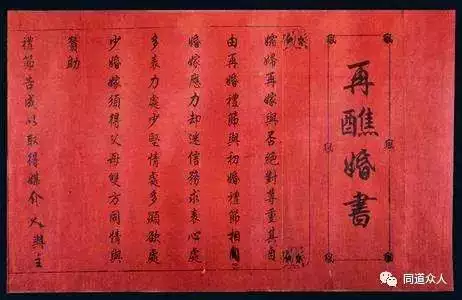 再醮婚書
孀婦再嫁與否絕對尊重其自
由再婚禮節與初婚禮節相同
婚嫁應力却迷信務求衷心處
多衷力處少堅情處多顧欲處
少婚嫁須得父母雙方同情與
贊助
禮節告成以取得媒介人與主
同道众人